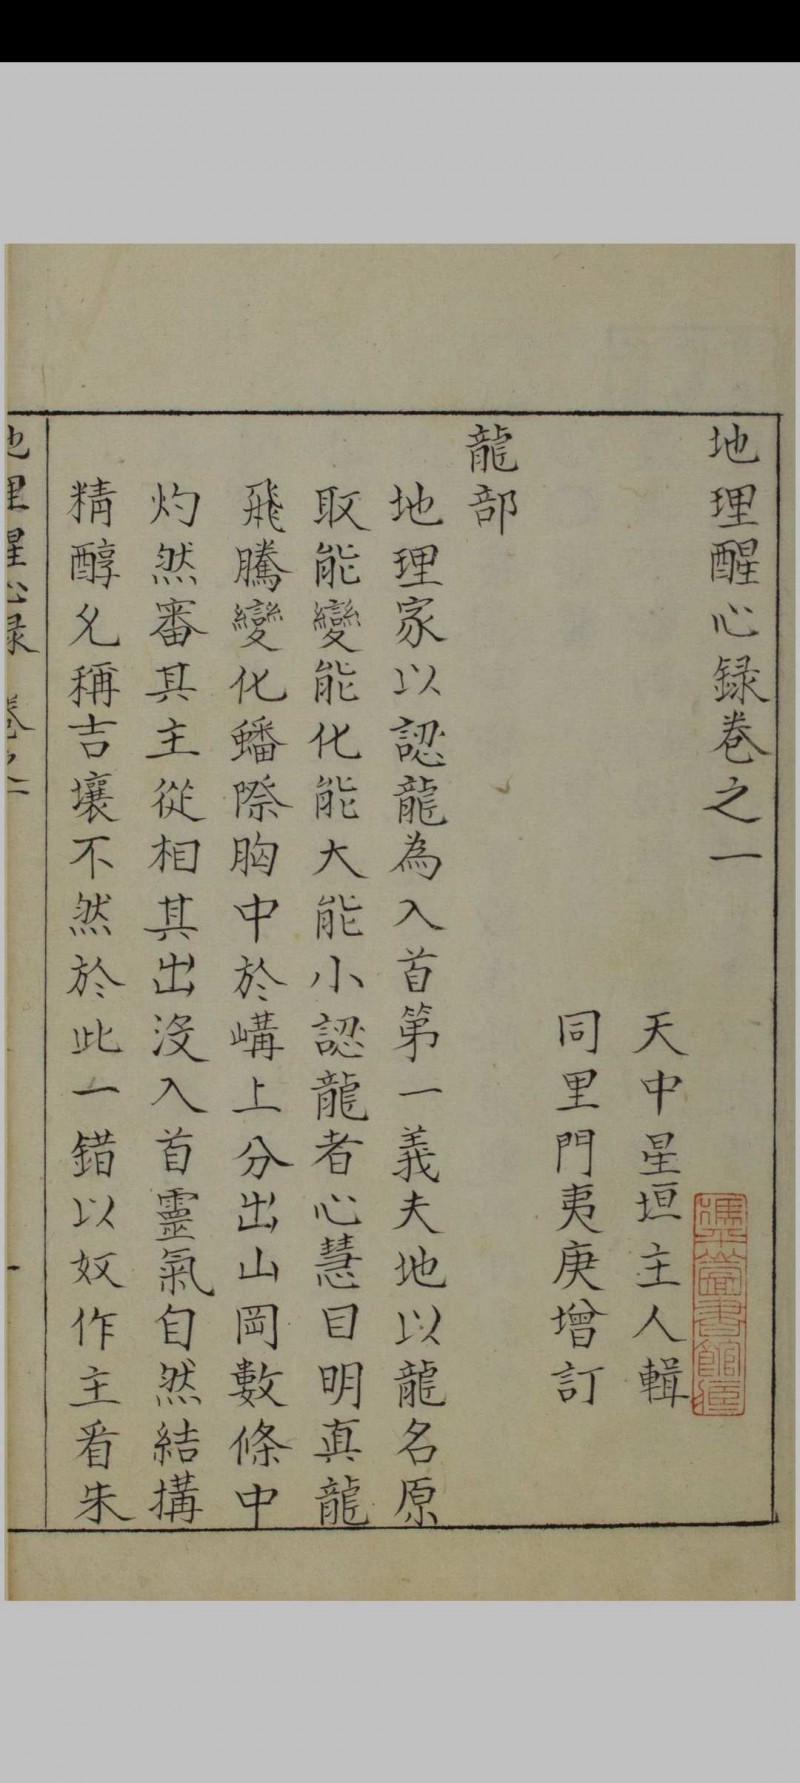 地理醒心録卷之一
天中星垣主人輯
同里門夷庚增訂
龍部
地理家以認龍為入首第一義夫地以龍名原
取能變能化能大能小認龍者心慧目明真龍
飛騰變化蟠際胸中於嵴上分出山岡數條中
灼然審其主從相其出没入首靈氣自然結搆
精醇允稱吉壤不然於此一錯以奴作主看朱
地理醒心録 卷之一
一